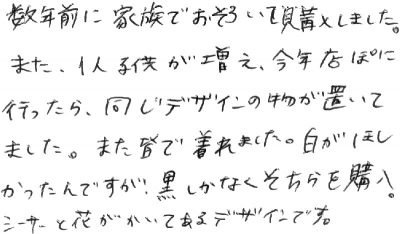 数年前に家族でおそろいで購入しました。
また、1人子供が増え、今年店ぽに
行ったら、同じデザインの物が置いて
ました。また皆で着れました。白がほし
かったんですが、黒しかなくそちらを購入。
シーサーと花がかいてあるデザインです。